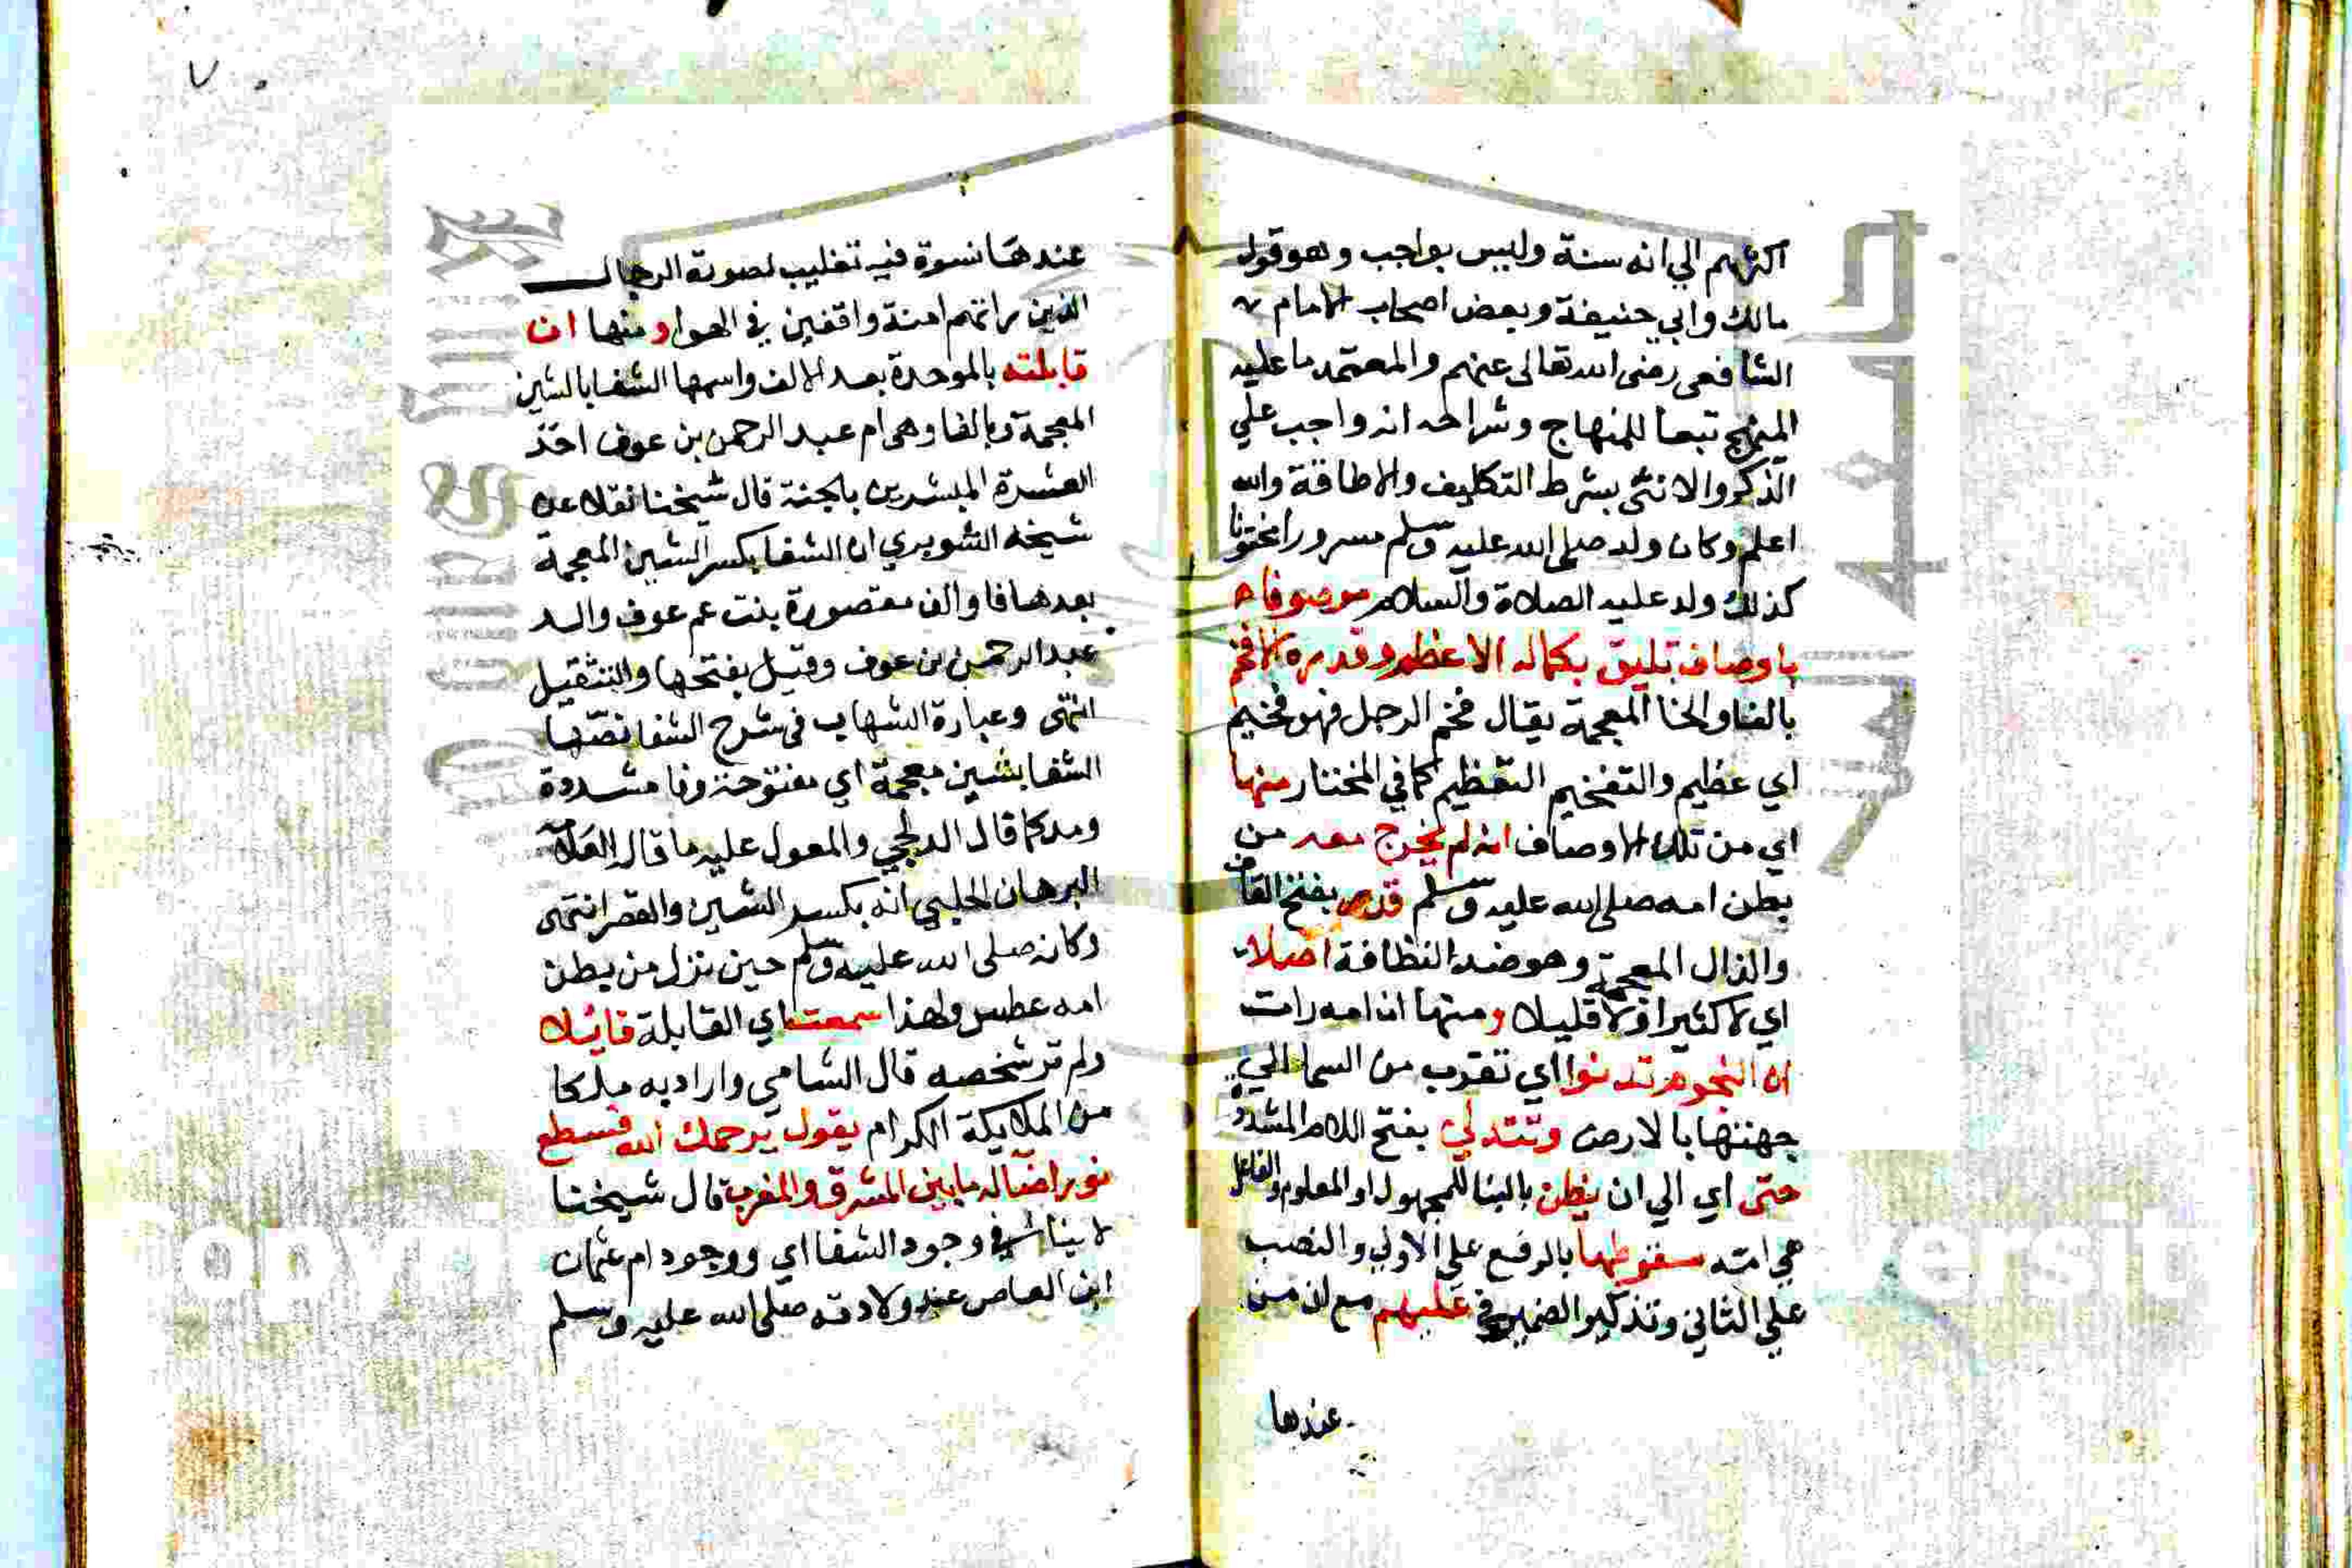 اكثرهم الي انه سنة وليس بواجب وهو قول
مالك وابي حنيفة وبعض اصحاب الامام
الشافعي رضى الله تعالى عنهم والمعتمد ما عليه
المنهج تبعا للمنهاج وشراحه انه واجب علي
الذكر والانثى بشرط التكليف والاطاقة والله
اعلم وكان ولد صلى الله عليه وسلم مسرورا مختونا
كذلك ولد عليه الصلاة والسلام موصوفا
باوصاف تليق بكماله الاعظم وقدره الافخم
بالفا والخا المعجمة يقال فخم الرجل فهو فخيم
اي عظيم والتفخيم التعظيم كما في المختار منها
اي من تلك الاوصاف انه لم يخرج معه من
بطن امه صلى الله عليه وسلم قذر بفتح القاف
والذال المعجمة وهو ضد النظافة اصلا
اي لا كثيرا ولا قليلا ومنها ان امه رات
ان النجوم تدنوا اي تقرب من السما الي
جهتها بالارض وتتدلي بفتح اللام المشددة
حتى اي الي ان يظن بالبنا للمجهول او المعلوم والفاعل
هي امته سقوطها بالرفع علي الاولي والنصب
علي الثاني وتذكير الضمير في عليهم مع ان من
عندها
٧
عندها نسوة فيه تغليب لصورة الرجال
الذين راتهم امنة واقفين في الهوا ومنها ان
قابلته بالموحدة بعد الالف واسمها الشفا بالشين
المعجمة وبالفا وهي ام عبد الرحمن بن عوف احد
العشرة المبشرين بالجنة قال شيخنا نقلا عن
شيخه الشوبري ان الشفا بكسر الشين المعجمة
بعدها فا والف مقصورة بنت عم عوف والد
عبد الرحمن بن عوف وقيل بفتحها والتثقيل
انتهى وعبارة الشهاب في شرح الشفا نصها
الشفا بشين معجمة اي مفتوحة وفا مشددة
ومد كما قال الدلجي والمعول عليه ما قال العلامة
البرهان الحلبي انه بكسر الشين والقصر انتهى
وكان صلى الله عليه وسلم حين نزل من بطن
امه عطس ولهذا سمعت اي القابلة قائلا
ولم تر شخصه قال الشامي واراد به ملكا
من الملايكة الكرام يقول يرحمك الله فسطع
نور اضا له ما بين المشرق والمغرب قال شيخنا
لا ينافي وجود الشفا اي ووجود ام عثمان
ابن العاص عند ولادته صلى الله عليه وسلم